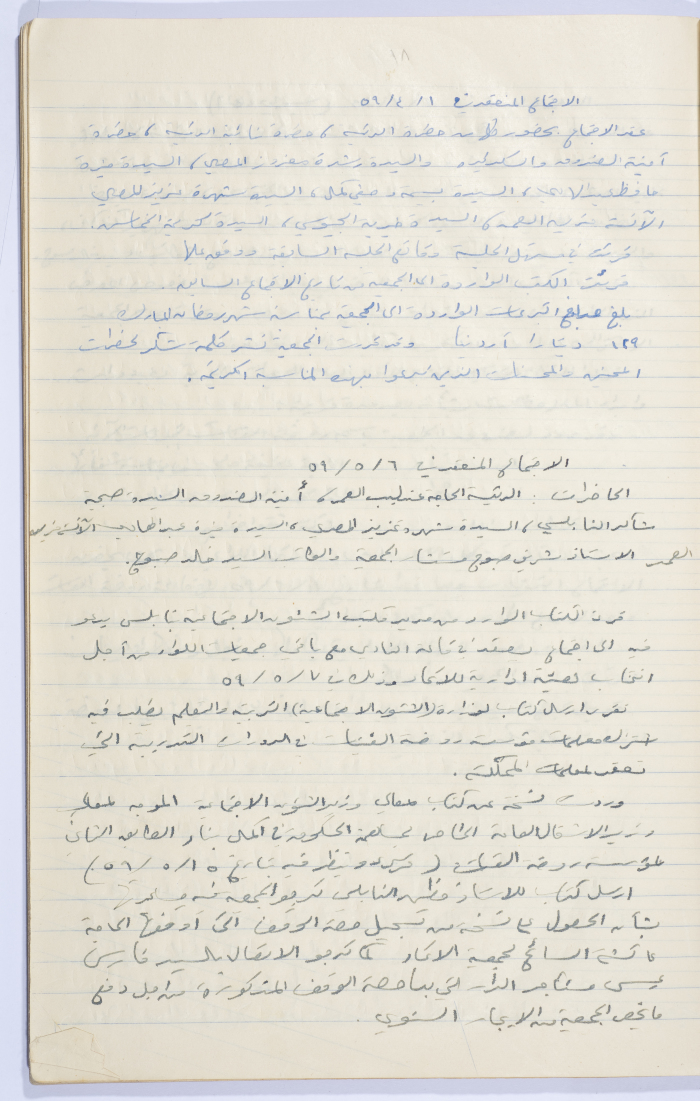 ١٨
الاجتماع المنعقد في ١/٤/٥٩
عقد الاجتماع بحضور كل من حضرة الرئيسة، حضرة نائبة الرئيسة، حضرة
أمينة الصندوق والسكرتيرة والسيدة رشدة معزوز المصري، السيدة
السيدة شهرة عزيز المصري
الآنسة العمد، السيدة الجيوسي، السيدة كريمة
قرئت في مستهل الجلسة وقائع الجلسة السابقة ووفق عليها
قرئت الكتب الواردة الى الجمعية من تاريخ الاجتماع السابق.
بلغ التبرعات الواردة الى الجمعية بمناسبة شهر رمضان المبارك
١٢٩ دينارا أردنيا وقد قررت الجمعية نشر كلمة شكر لحضرات
المحسنين والمحسنات الذين تبرعوا لهذه المناسبة الكريمة.
الاجتماع المنعقد في ٦/٥/٥٩
الحاضرات: الرئيسة الحاجة عندليب العمد، أمينة الصندوق السيدة صبحية
النابلسي، السيدة شهرة عزيز المصري، السيدة عبد الهادي الآنسة
العمد الاستاذ صبوح مستشار الجمعية والكاتب السيد خالد صبوح.
قرئ الكتاب الوارد من مدير مكتب الشئون الاجتماعية نابلس يدعو
فيه الى اجتماع يعقد في قاعة النادي مع باقي جمعيات اللواء من أجل
انتخاب هيئة ادارية للاتحاد وذلك في ٧/٥/٥٩
تقرر ارسال كتاب لوزارة (الشئون الاجتماعية) التربية والتعليم يطلب فيه
اشتراك معلمات مؤسسة روضة الفتيات في الدورات التدريبية التي
تعقد لمعلمات المملكة.
وردت نسخة عن كتاب معالي وزير الشئون الاجتماعية الموجه لمعالي
وزير الاشغال العامة الخاص بمساهمة الحكومة في اكمال بناء الطابق الثاني
لمؤسسة روضة الفتيات ( فيه بتاريخ ١٥/٥/٥٦ )
ارسل كتاب للاستاذ النابلسي ترجو الجمعية فيه مساعدتها
بشأن الحصول على نسخة من تسجيل حصة الوقف التي أوقفتها الحاجة
عائشة السائح لجمعية الاتحاد كما ترجو الاتصال بالسيد فارس
عيسى مستأجر الدار التي بها حصة الوقف المذكورة، من اجل دفع
ما يخص الجمعية من الايجار السنوي.